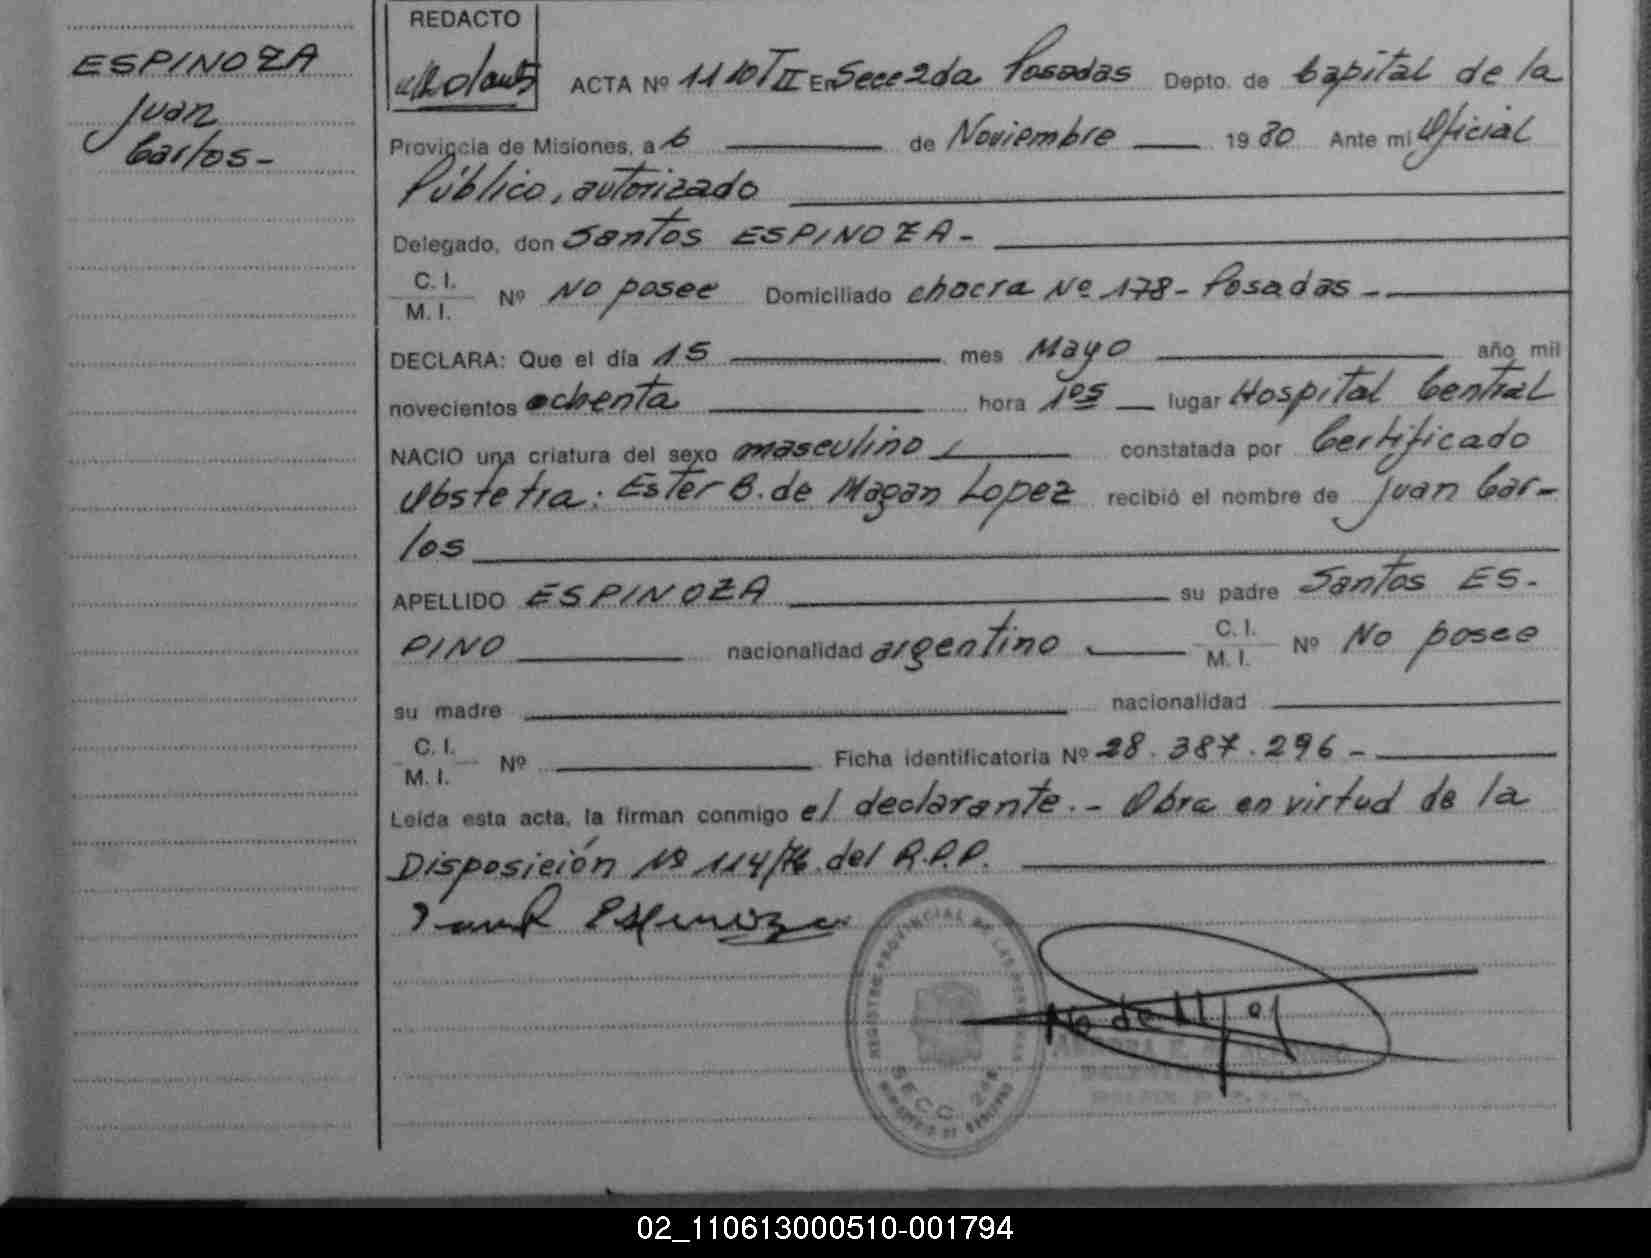 ESPINOZA
Juan
Carlos-
REDACTO
ACTA Nº 1110 T II En Secc 2da Posadas Depto. de Capital de la
Provincia de Misiones, a 6 de Noviembre 1980 Ante mi Oficial
Público, autorizado
Delegado, don Santos ESPINOZA-
C. I.
M. I. Nº No posee Domiciliado chacra Nº 178- Posadas-
DECLARA: Que el día 15 mes Mayo año mil
novecientos ochenta hora 1⁰⁵ lugar Hospital Central
NACIO una criatura del sexo masculino constatada por Certificado
Obstetra: Ester B. de Magan Lopez recibió el nombre de Juan Car-
los
APELLIDO ESPINOZA su padre Santos ES-
PINO nacionalidad argentino C. I.
M. I. Nº No posee
su madre nacionalidad
C. I.
M. I. Nº Ficha identificatoria Nº 28.387.296-
Leída esta acta, la firman conmigo el declarante.- Obra en virtud de la
Disposición Nº 114/76 del R.P.P.
Espinoza
REGISTRO PROVINCIAL DE LAS PERSONAS
SECC. 2da
02_110613000510-001794